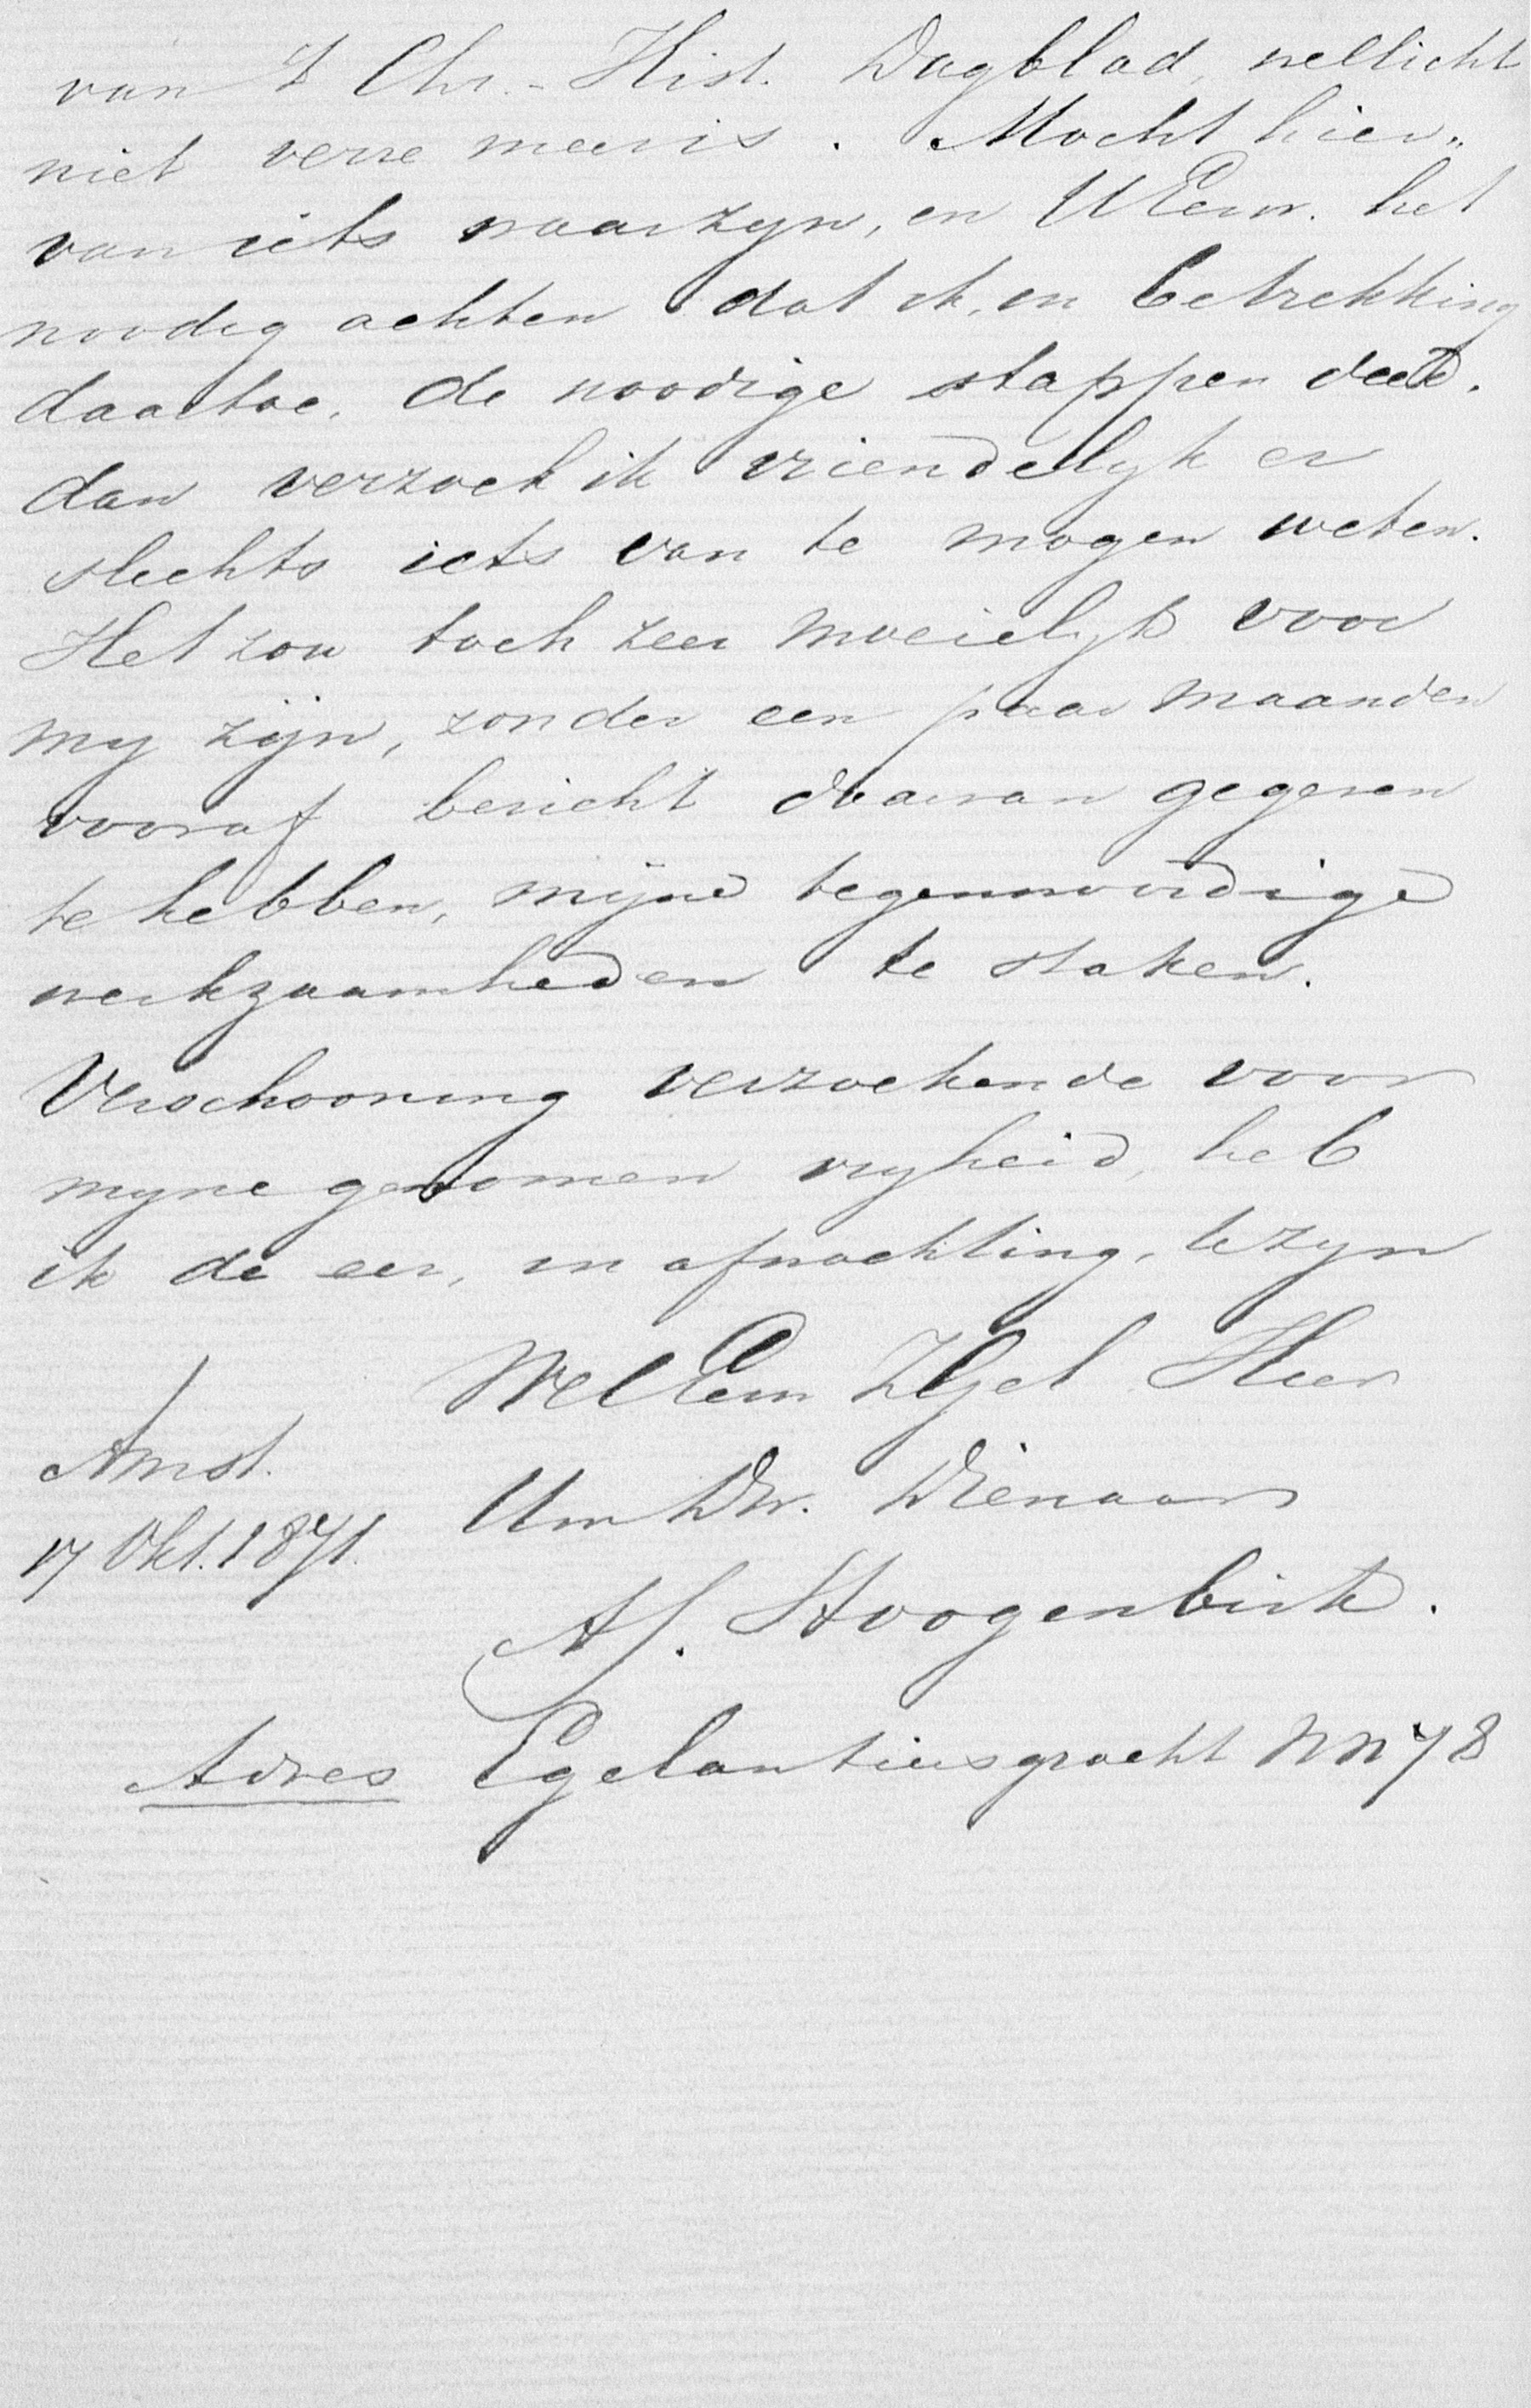 van 't Chr.-Hist. Dagblad, wellicht
niet verre meer is. Mocht hier„
van iets waar zyn, en UEerw. het
noodig achten dat ik, in betrekking
daartoe, de noodige stappen deed,
dan verzoek ik vriendelyk er
slechts iets van te mogen weten.
Het zou toch zeer moeielyk voor
my zijn, zonder een paar maanden
vooraf bericht daarvan gegeven
te hebben, mijne tegenwoordige
werkzaamheden te staken.
Verschooning verzoekende voor
myne genomen vryheid, heb
ik de eer, in afwachting, te zyn
WelEerw ZGel Heer
Amst. Uw Dw. Dienaar
17 Okt. 1871.
AJ. Hoogenbirk.
Adres Egelantiersgracht NN 78